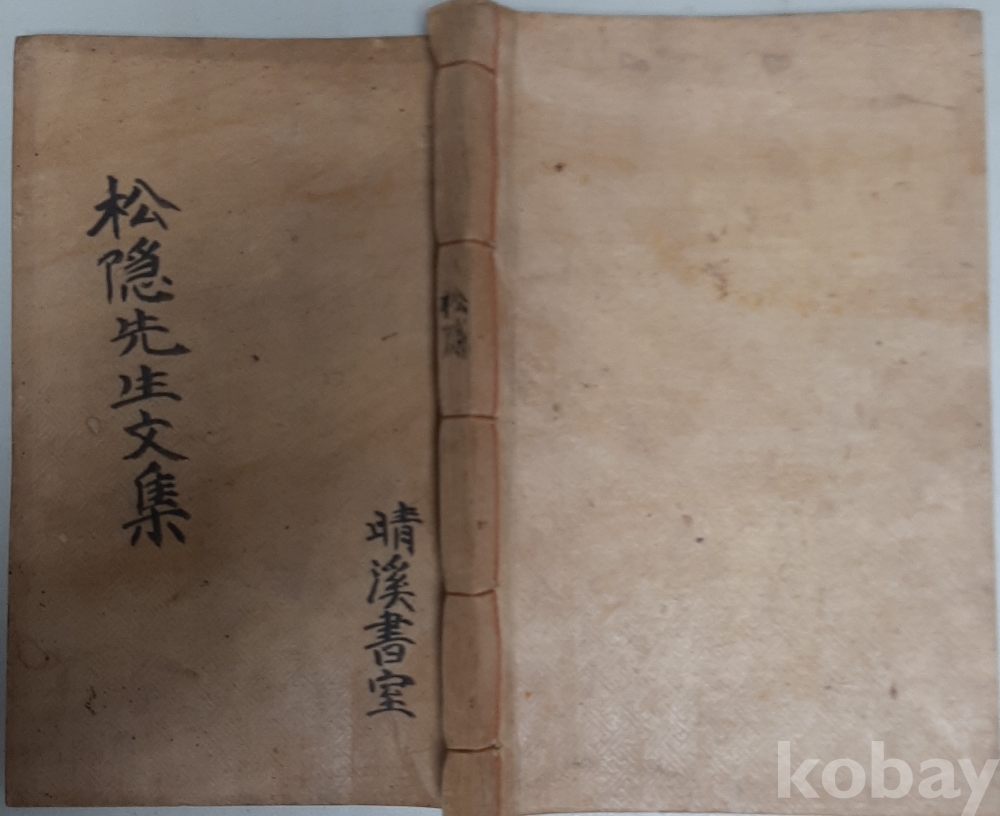 松隐先生文集
晴溪書室
松隱
kobay